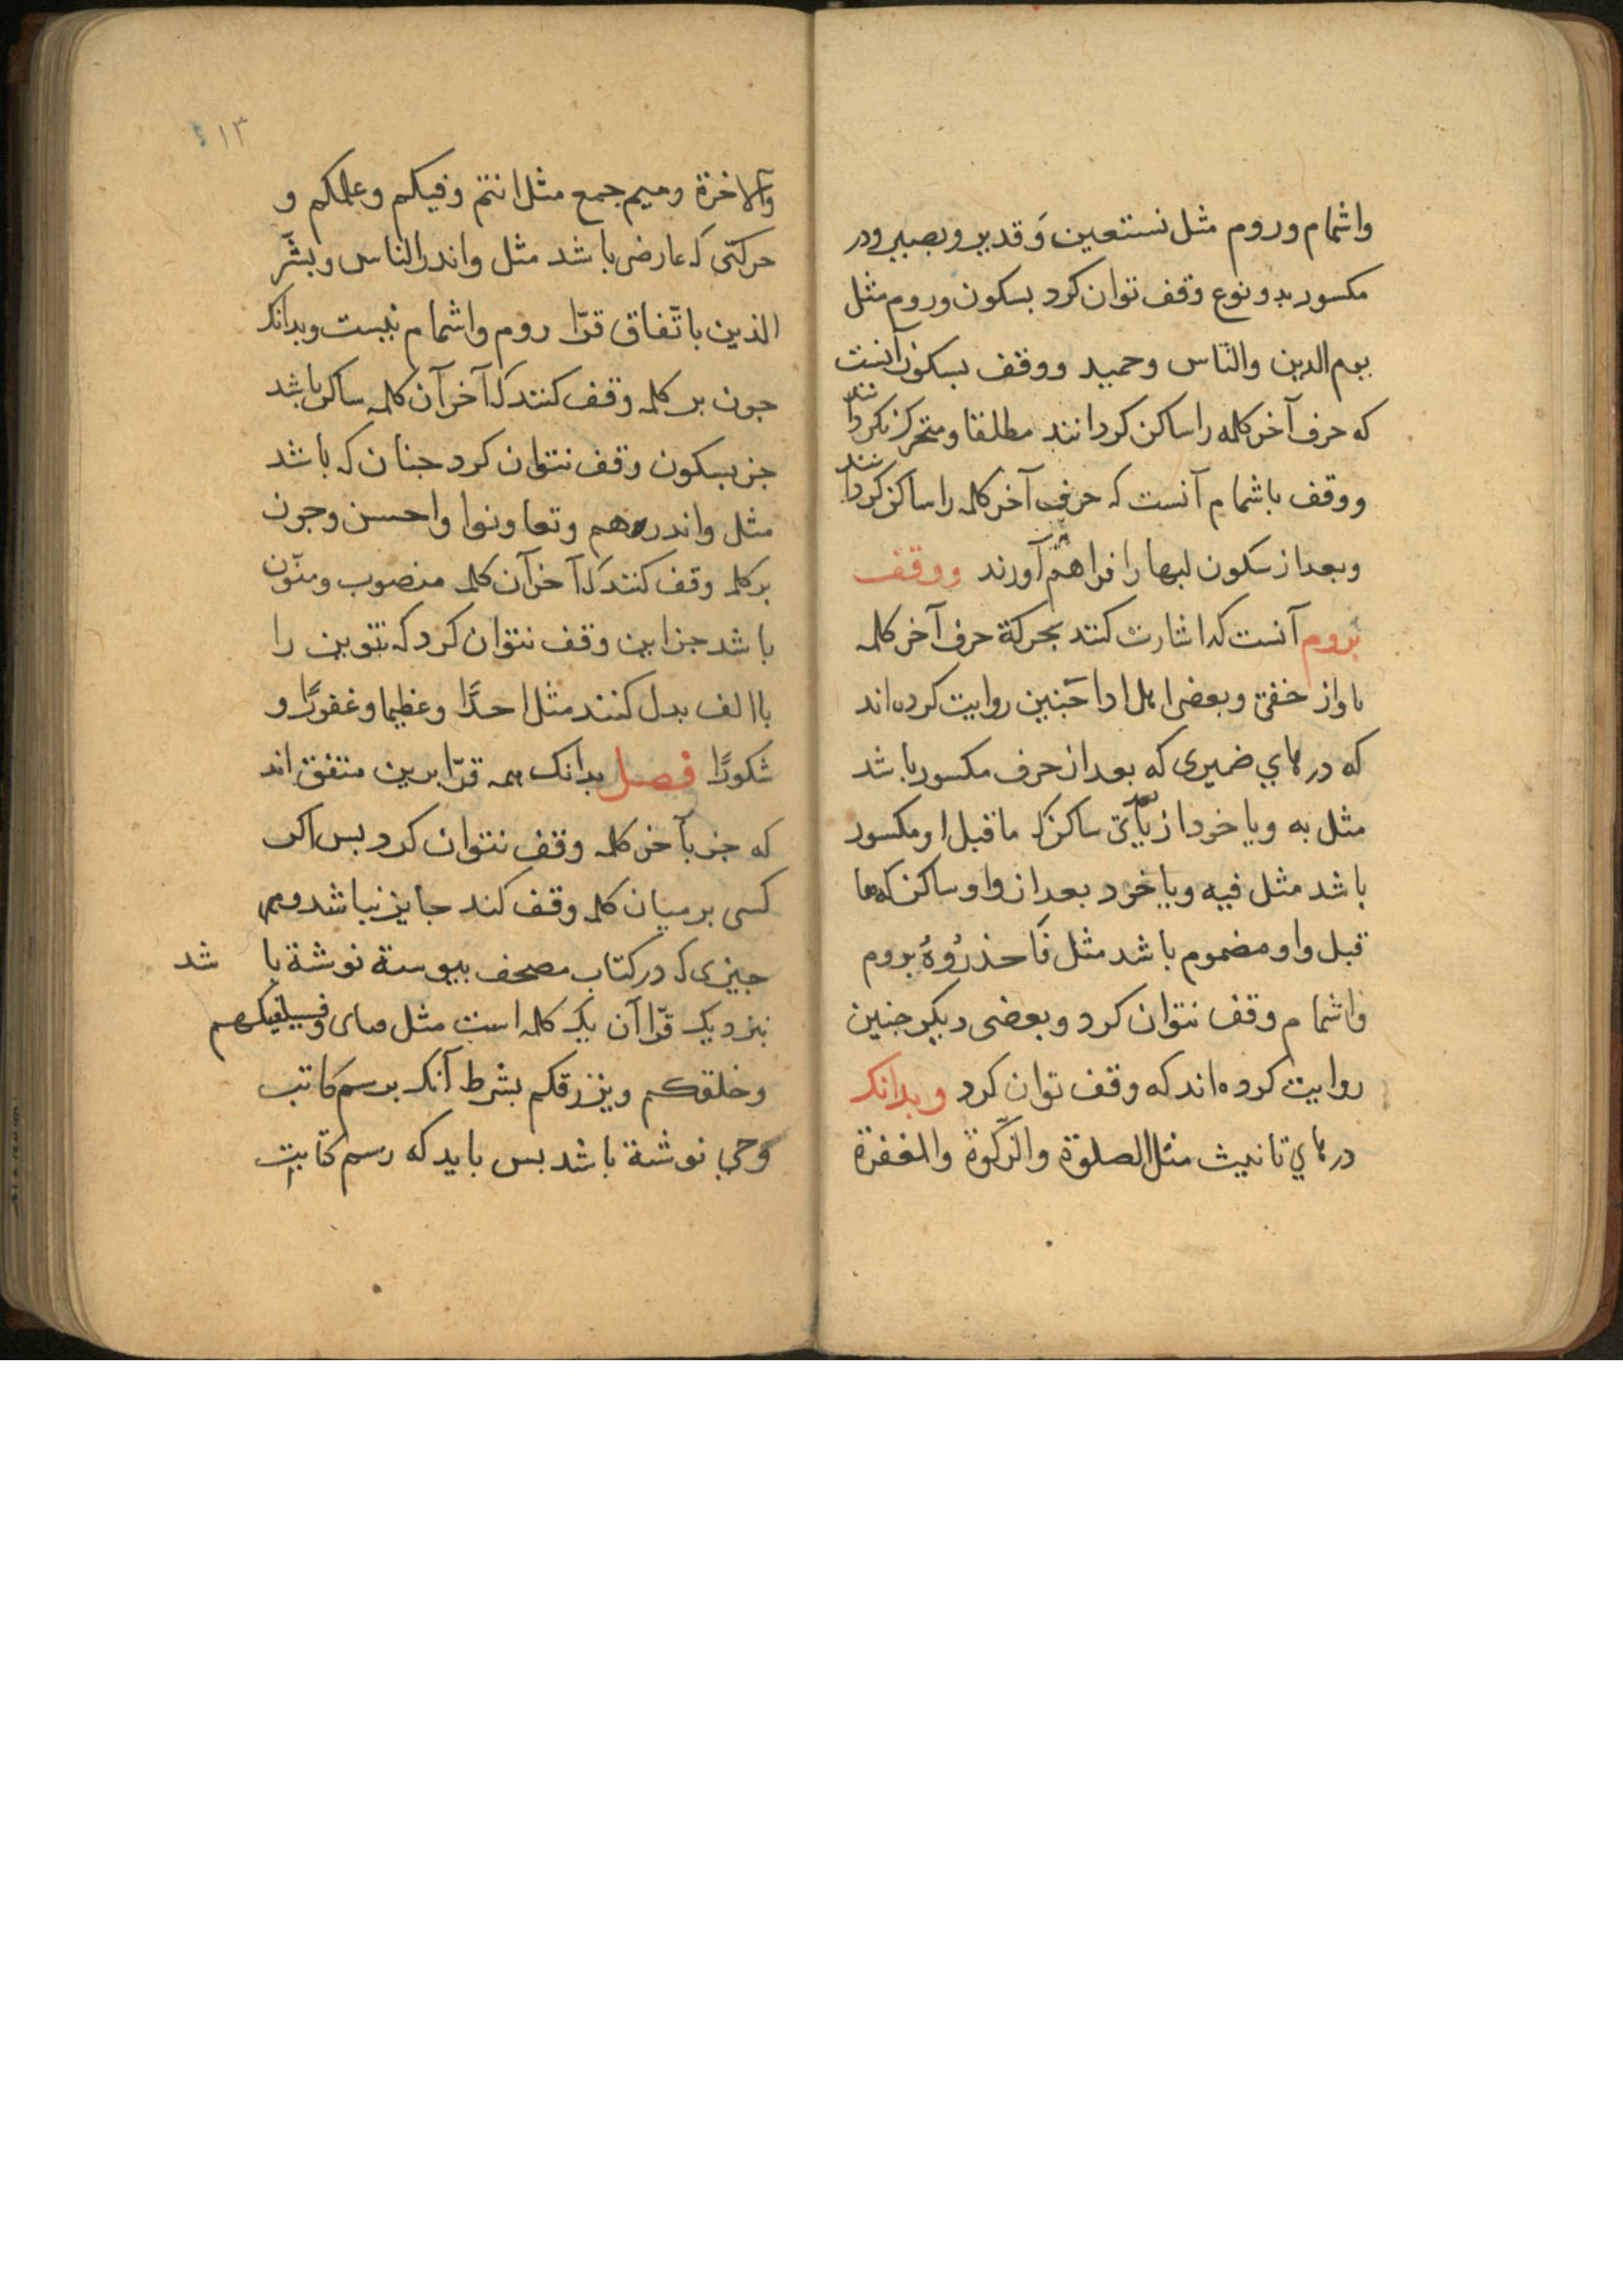 واشمام وروم مثل نستعین وَقدیر وبصیر ودر
مکسور بدو نوع وقف توان کرد بسکون وروم مثل
یوم الدین والنّاس وحمید ووقف بسکون آنست
که حرف آخر کلمه را ساکن کردانند مطلقا ومتحرک نکردانند
ووقف باشمام آنست که حرف آخر کلمه را ساکن کردانند
وبعد از سکون لبها را فراهم آورند ووقف
بروم آنست که اشارت کنند بحرکة حرف آخر کلمه
باواز خفی وبعضی اهل ادا چنین روایت کرده‌اند
که در های ضمیری که بعد از حرف مکسور باشد
مثل به ویا خود از یای ساکن که ما قبل او مکسور
باشد مثل فیه ویا خود بعد از واو ساکن که ما
قبل واو مضموم باشد مثل فَاحذرُوهُ بروم
واشمام وقف نتوان کرد وبعضی دیکر جنین
روایت کرده‌اند که وقف توان کرد وبدانک
در های تانیث مثل الصلوة والزّکوة والمغفرة
۱۳
والاخرة ومیم جمع مثل انتم وفیکم وعلیکم و
حرکتی که عارضی باشد مثل واندر الناس وبشّر
الذین باتّفاق قرّا روم واشمام نیست وبدانک
جون بر کلمه وقف کنند که آخر آن کلمه ساکن باشد
جز بسکون وقف نتوان کرد جنان که باشد
مثل واندرهم وتعاونوا واحسن وجون
بر کلمه وقف کنند که آخر آن کلمه منصوب ومنوّن
باشد جز این وقف نتوان کرد که تنوین را
باالف بدل کنند مثل احدًا وعظیما وغفورًا و
شکورًا فصل بدانک همه قرّا برین متفق اند
که جز بآخر کلمه وقف نتوان کرد بس اکر
کسی بر میان کلمه وقف کند جایز نباشد وهر
جیزی که در کتاب مصحف بیوستة نوشتة باشد
نزدیک قرّا آن یک کلمه است مثل فسیکفیکهم
وخلقکم ویرزقکم بشرط آنک برسم کاتب
وحی نوشتة باشد بس باید که رسم کتابت